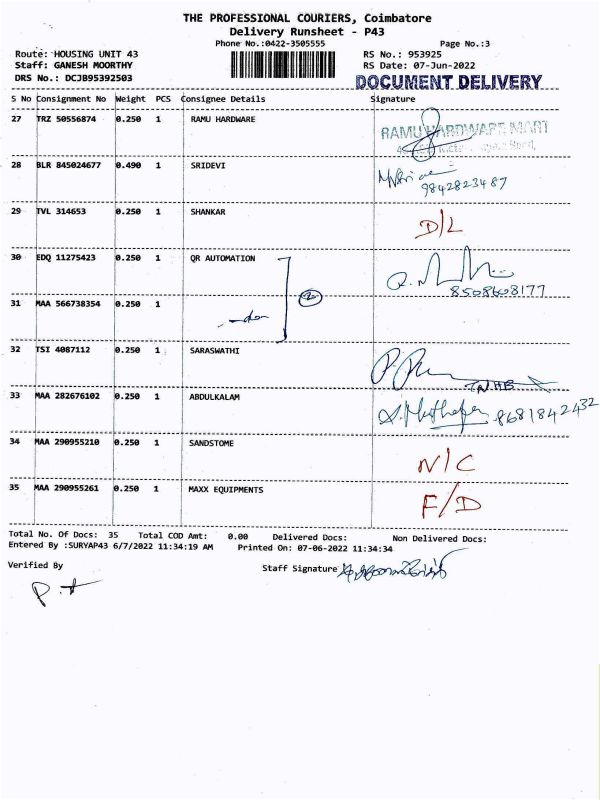 THE PROFESSIONAL COURIERS, Coimbatore
Delivery Runsheet - P43
Phone No.:0422-3505555 Page No.:3
Route: HOUSING UNIT 43 RS No.: 953925
Staff: GANESH MOORTHY RS Date: 07-Jun-2022
DRS No.: DCJB95392503 DOCUMENT DELIVERY
S No Consignment No Weight PCS Consignee Details Signature
27 TRZ 50556874 0.250 1 RAMU HARDWARE RAMU HARDWARE MART
28 BLR 845024677 0.490 1 SRIDEVI
9842823487
29 TVL 314653 0.250 1 SHANKAR D/L
30 EDQ 11275423 0.250 1 QR AUTOMATION
8508608177
31 MAA 566738354 0.250 1 -do- 2
32 TSI 4087112 0.250 1 SARASWATHI
TNHB
33 MAA 282676102 0.250 1 ABDULKALAM 8681842432
34 MAA 290955210 0.250 1 SANDSTOME N/C
35 MAA 290955261 0.250 1 MAXX EQUIPMENTS F/D
Total No. Of Docs: 35 Total COD Amt: 0.00 Delivered Docs: Non Delivered Docs:
Entered By :SURYAP43 6/7/2022 11:34:19 AM Printed On: 07-06-2022 11:34:34
Verified By Staff Signature